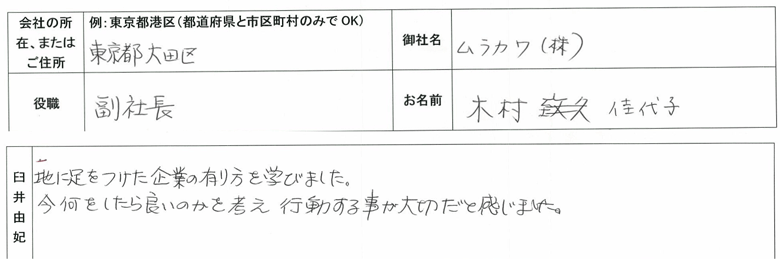 会社の所在、またはご住所
例：東京都港区（都道府県と市区町村のみでOK）
東京都大田区
御社名
ムラカワ（株）
役職
副社長
お名前
木村 佳代子
臼井由妃
地に足をつけた企業の有り方を学びました。
今何をしたら良いのかを考え 行動する事が大切だと感じました。